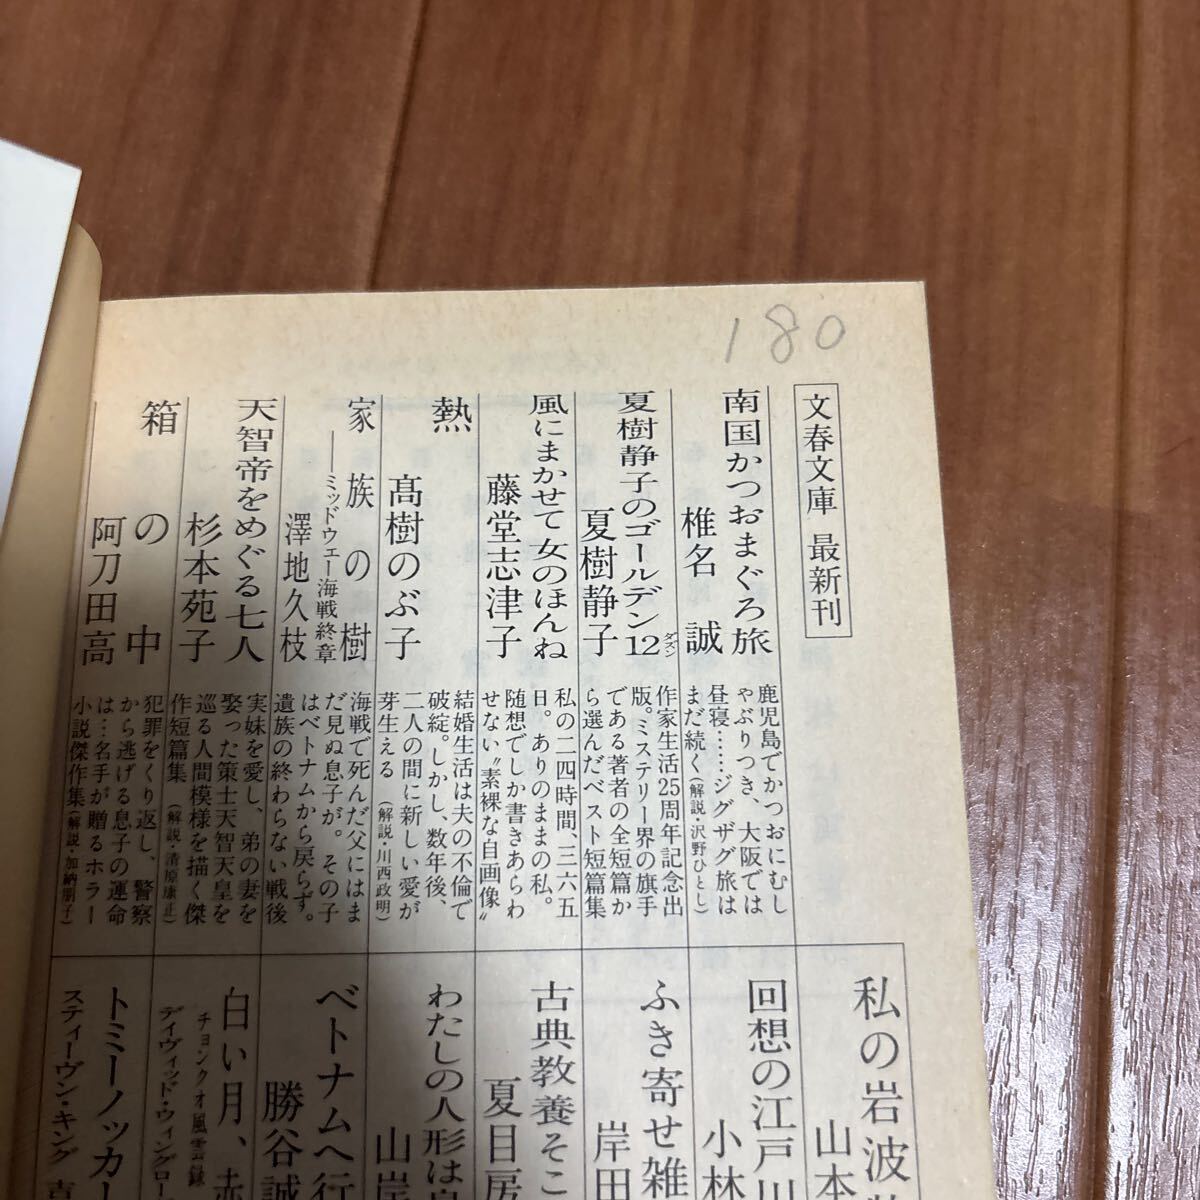 180
文春文庫 最新刊
南国かつおまぐろ旅
椎名 誠
鹿児島でかつおにむし
ゃぶりつき、大阪では
昼寝……ジグザグ旅は
まだ続く(解説・沢野ひとし)
夏樹静子のゴールデン12
ダズン
夏樹静子
作家生活25周年記念出
版。ミステリー界の旗手
である著者の全短篇か
ら選んだベスト短篇集
風にまかせて女のほんね
藤堂志津子
私の二四時間、三六五
日。ありのままの私。
随想でしか書きあらわ
せない〝素裸な自画像〟
熱
髙樹のぶ子
結婚生活は夫の不倫で
破綻。しかし、数年後、
二人の間に新しい愛が
芽生える (解説・川西政明)
家族の樹
──ミッドウェー海戦終章
澤地久枝
海戦で死んだ父にはま
だ見ぬ息子が。その子
はベトナムから戻らず。
遺族の終わらない戦後
天智帝をめぐる七人
杉本苑子
実妹を愛し、弟の妻を
娶った策士天智天皇を
巡る人間模様を描く傑
作短篇集 (解説・清原康正)
箱の中
阿刀田高
犯罪をくり返し、警察
から逃げる息子の運命
は…名手が贈るホラー
小説傑作集(解説・加納朋子)
私の岩波
山本
回想の江戸川
小林
ふき寄せ雑
岸田
古典教養そこ
夏目房
わたしの人形は
山岸
ベトナムへ行
勝谷誠
白い月、赤
チョンクオ風雲録
デイヴィッド・ウィングロー
トミーノッカー
スティーヴン・キング